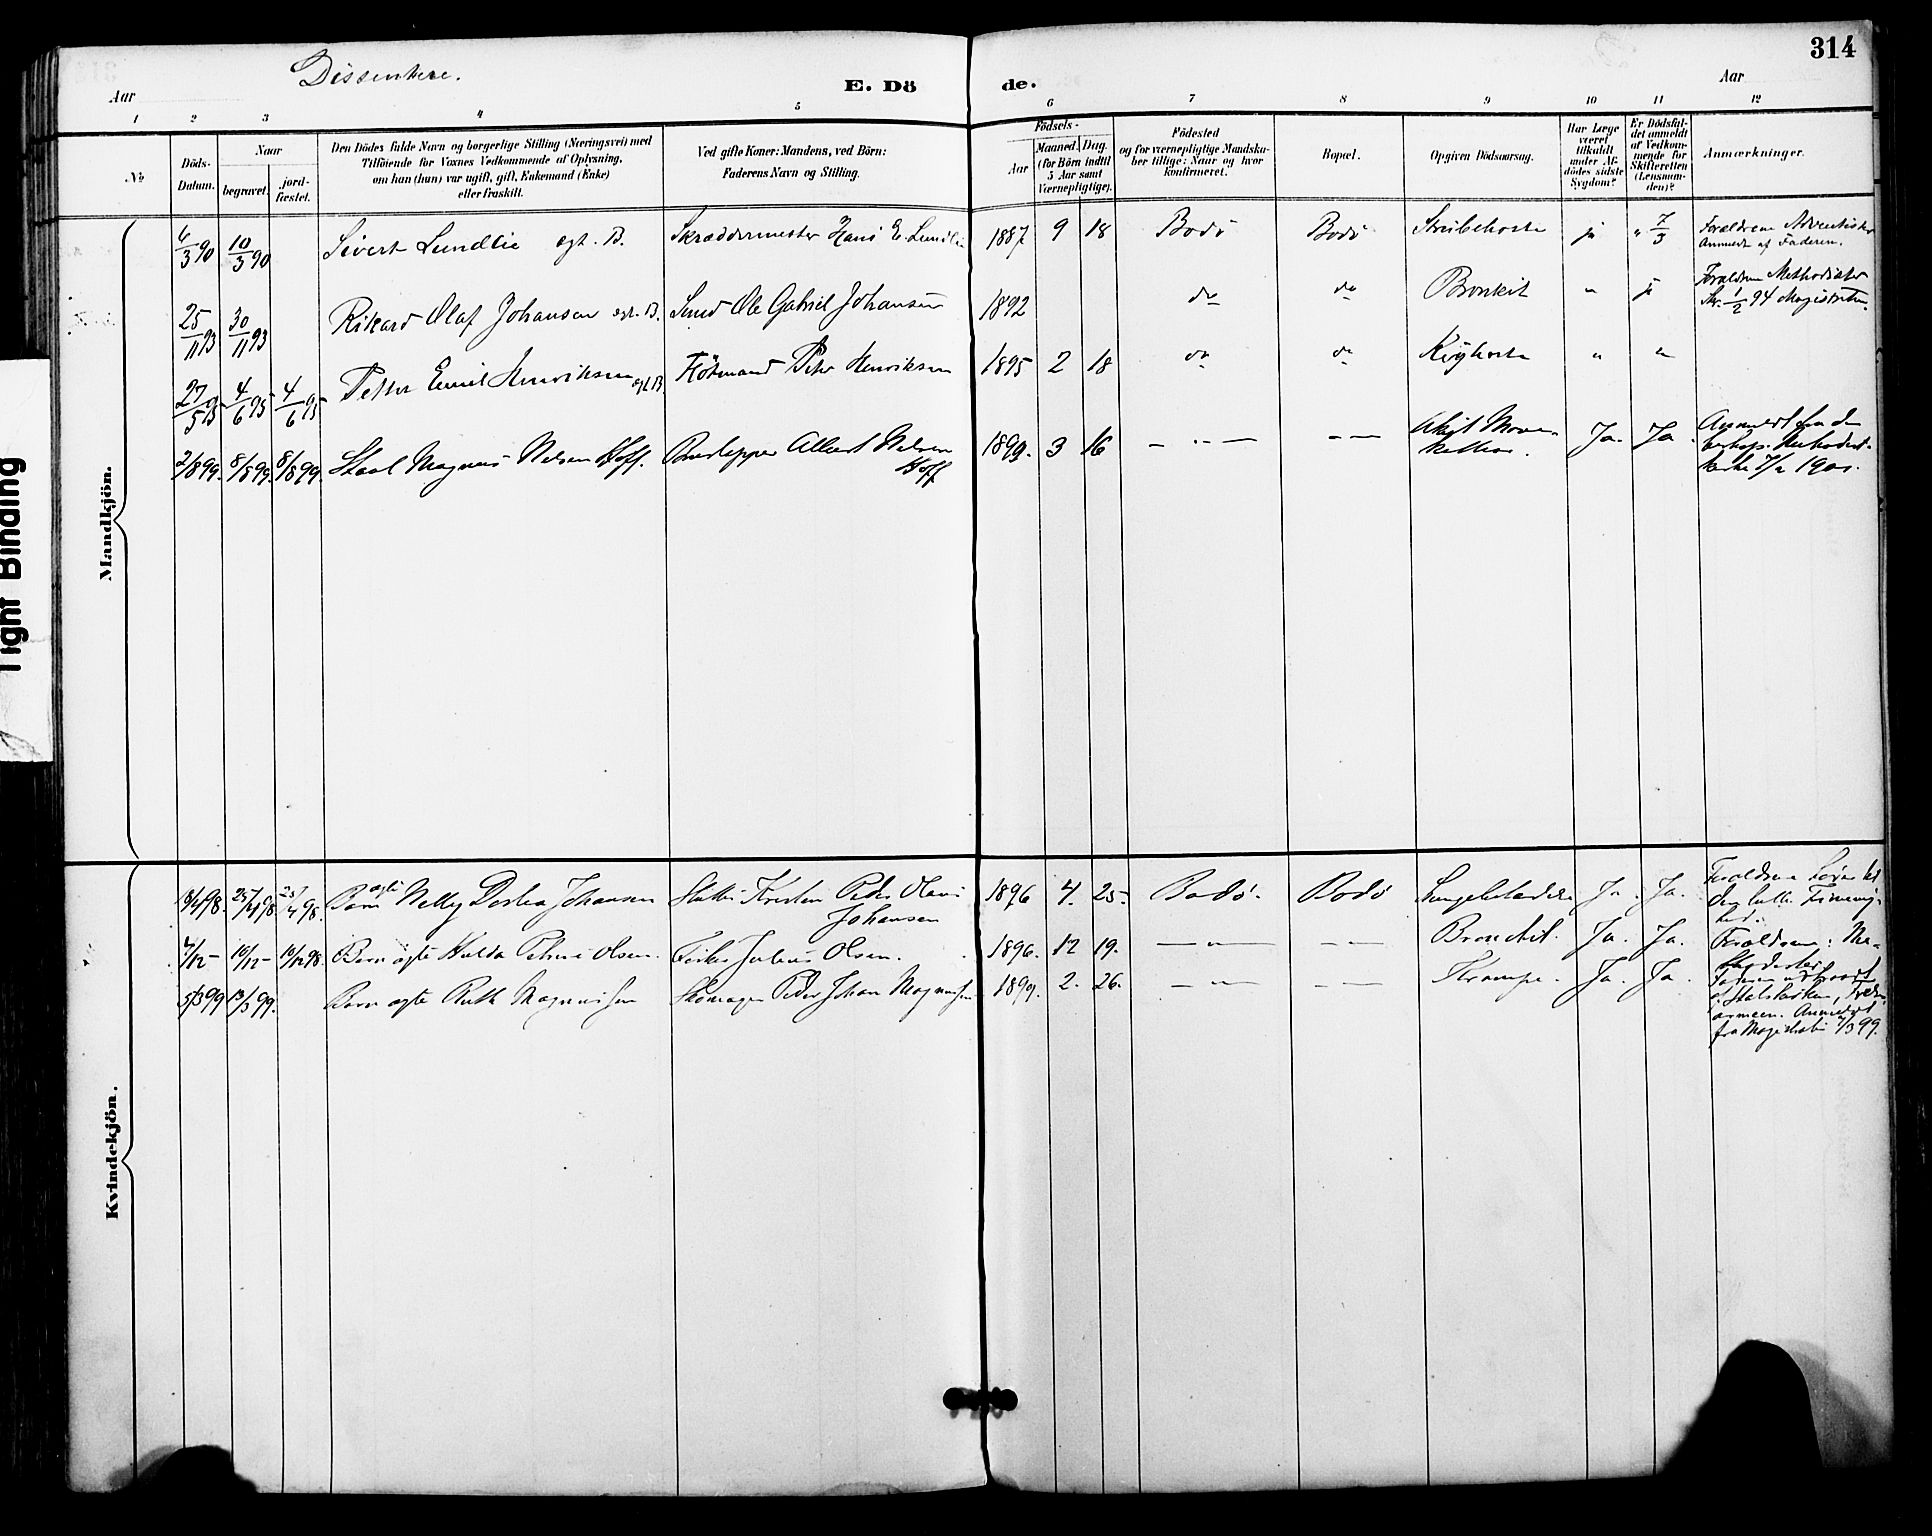 314
Dissentere.
Aar
E. Dö
de.
Aar
1 2 3 4 5 6 7 8 9 10 11 12
No
Döds-
Datum.
Naar
begravet.
jord-
fæstet.
Den Dödes fulde Navn og borgerlige Stilling (Næringsvei) med
Tilföiende for Voxnes Vedkommende af Oplysning,
om han (hun) var ugift, gift, Enkemand (Enke)
eller fraskilt.
Ved gifte Koner: Mandens, ved Börn:
Faderens Navn og Stilling.
Födsels-
Aar
Maaned.
Dag.
(for Börn indtil
5 Aar samt
Værnepligtige).
Födested
og for værnepligtige Mandska-
ber tillige: Naar og hvor
konfirmeret.
Bopæl.
Opgiven Dödsaarsag.
Har Læge
været
tilkaldt
under Af-
dödes sidste
Sygdom?
Er Dödsfal-
det anmeldt
af Vedkom-
mende for
Skifteretten
(Lensman-
den)?
Anmærkninger.
Mandkjön.
6/3 90 10/3 90 Sivert Lundlie ægt. B. Skræddermester Hans E. Lundlie 1887 9 18 Bodö Bodö Strubehoste ja " 7/3 Forældrene Adventister
Anmeldt af Faderen.
25/11 93 30/11 93 Rikard Olaf Johansen ægt. B. Smed Ole Gabriel Johansen 1892 do do Bronkit " ja Forældrene Methodister
Skr. 1/2 94 Magistraten.
27/5 95 4/6 95 4/6 95 Petter Emil Henriksen ægt B. Peter Henriksen 1895 2 18 do do Kighoste " "
2/8 99. 8/8 99. 8/8 99. Magnus Nelsen Hoff. Albert Nelsen
Hoff 1899. 3 16 — " — — " — Ja. Ja. Anmeldt fra
1900.
Kvindekjön.
18/4 98. 25/4 98. 25/4 98. Barn ægte Nelly Dorthea Johansen Kristen Peder Olavi
Johansen 1896 4. 25. Bodö. Bodö Lungebetændelse Ja. Ja. Forældrene
4/12 — 10/12 — 10/12 98. Barn ægte Hulda Petrine Olsen. Fisker Julius Olsen. 1896. 12 19. — " — — " — Bronchit. Ja. Ja. Forældrene: Me-
thodister
5/3 99 13/3 99. Barn ægte Ruth Magnussen Skomager Peder Johan Magnussen 1899. 2. 26. — " — — " — Krampe. Ja. Ja. Faderen udtraadt
af Statskirken,
armeen. Anmeldt
fra Magistraten 7/3 99.
Tight Binding